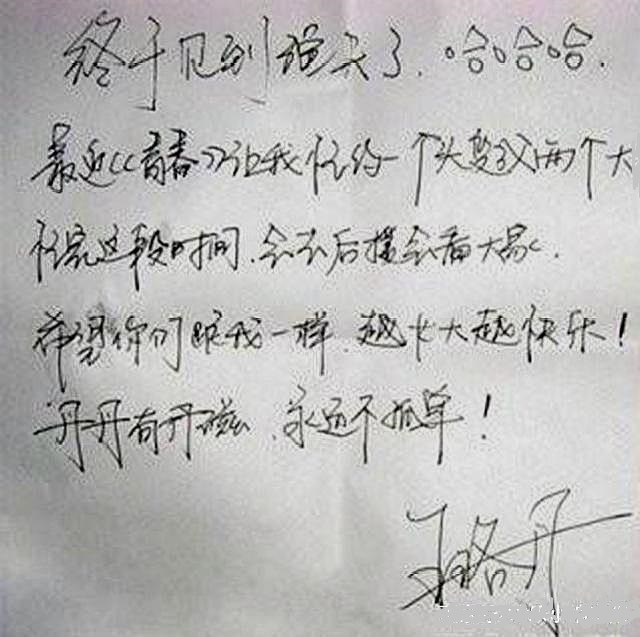 终于见到曙光了.哈哈哈.
最近《青春》让我忙的一个头变成两个大
忙完这段时间.会去后援会看大家.
希望你们跟我一样.越长大越快乐!
丹丹有丹磁.永远不孤单!
王珞丹